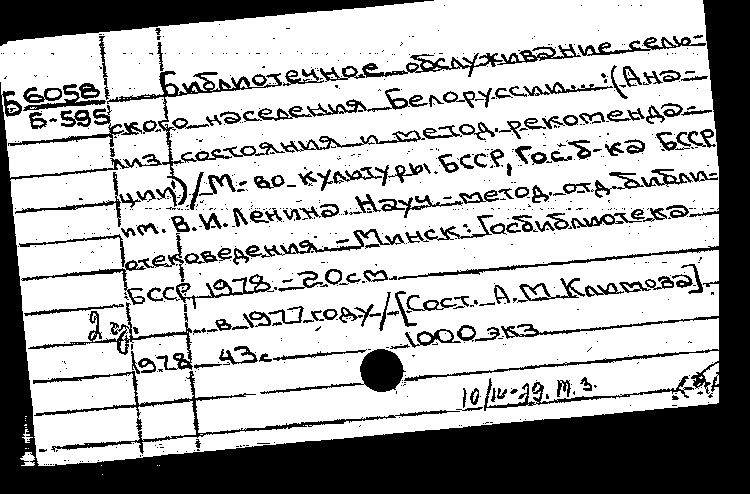 Б6058
Б-595
Библиотечное обслуживание сель-
ского населения Белоруссии...: (Ана-
лиз состояния и метод. рекоменда-
ции) / М-во культуры БССР, Гос. б-ка БССР
им. В.И. Ленина. Науч.-метод. отд. библи-
отековедения. - Минск: Госбиблиотека
БССР, 1978. - 20 см.
2 э.
в 1977 году / [Сост. А.М. Климова].
1978 43 с. 1000 экз.
10/IV-79. М.З.